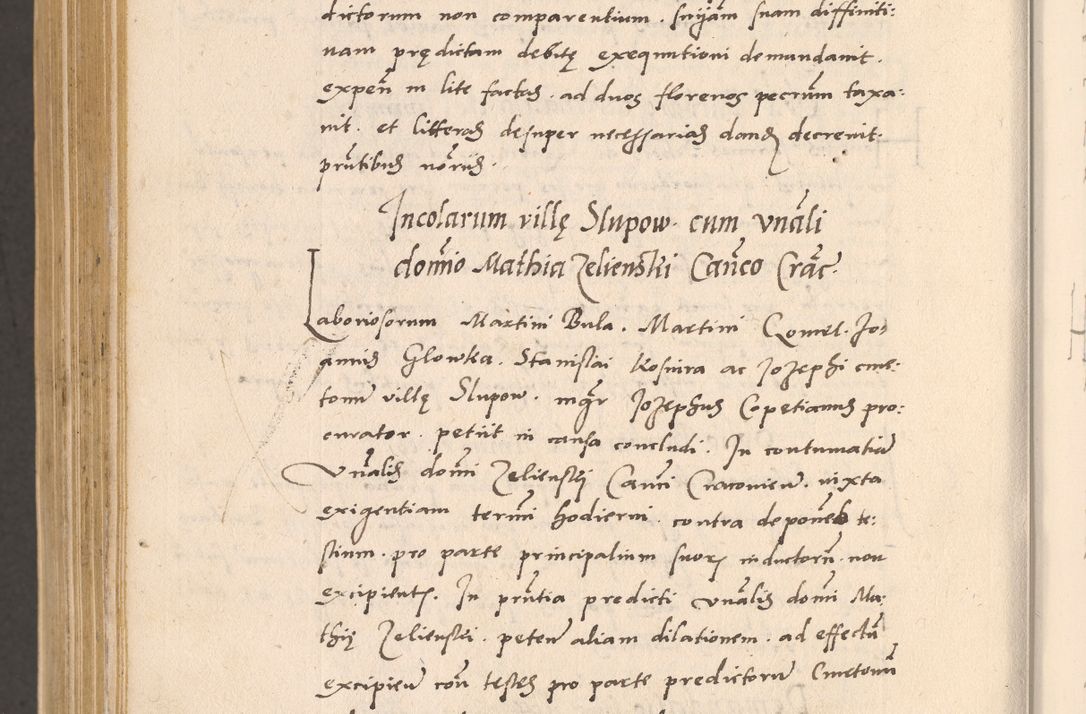 dictorum non comparentium. sniam suam diffiniti:
uam prędictam debitę exequutioni demandauit.
expen̄ in lite factas. ad duos florenos pecrum̄ taxa:
uit. et litteras desuper necessarias dandas decreuit.
prn̄tibus nor̄iis.
Incolarum villę Slupow. cum vnāli
domīo Mathia Zelienskii Can̄co Crac̄.
Laboriosorum Martini Bula. Martini Gomel. Jo:
annis Glowka. Stanislai Kosmra ac Jozephi cme:
tonū villę Slupow. mgr̄ Jozephus Copetianus pro:
curator. petiit in causa concludi. In contumatia
vnālis domīi Zelienskii Can̄ci Cracouien̄. iuxta
exigentiam termīni hodierni. contra deponēs te:
stium. pro parte principalium suorum inductorū. non
excipientis. In prn̄tia predicti vnālis domīi Ma:
thię Zelienskii. peten̄ aliam dilationem. ad effectū
excipien̄ con̄ testes pro parte predictorū Cmetonū